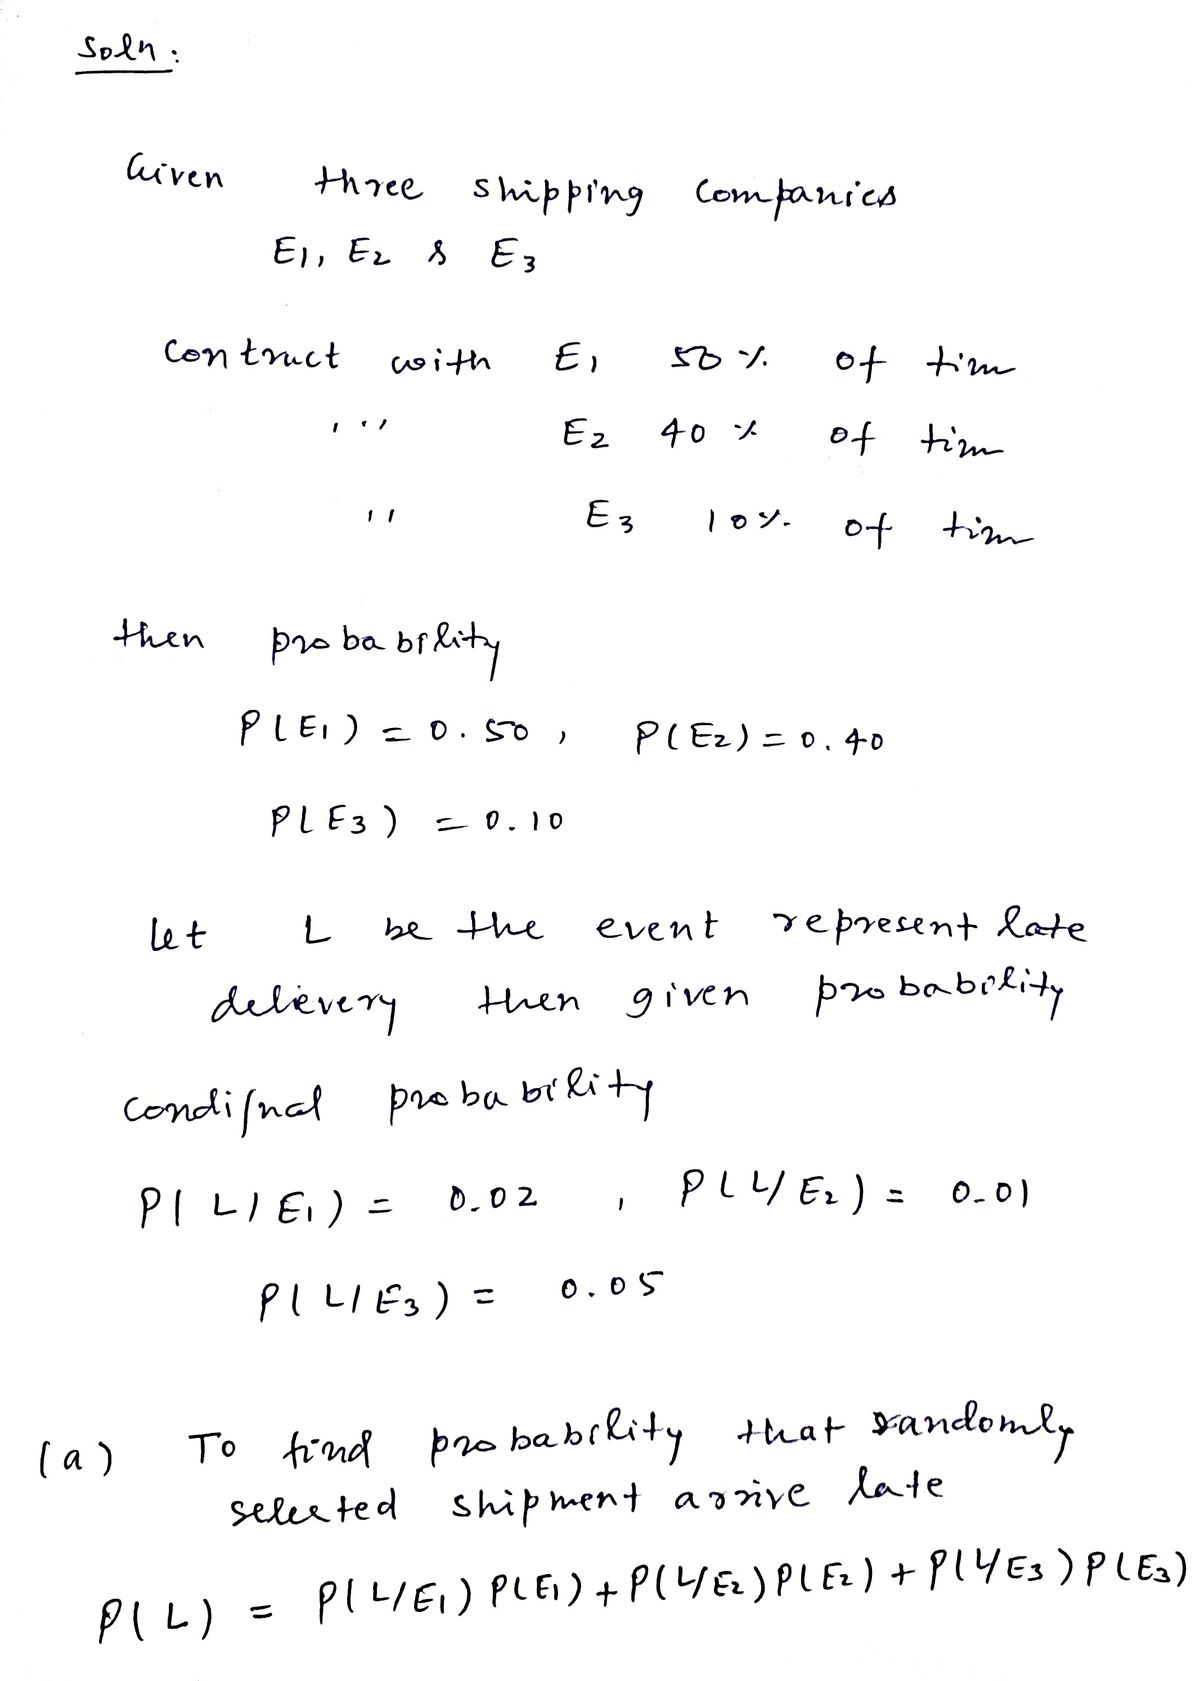 Soln :
Given three shipping companies
E1, E2 & E3
Contruct with E1 50 % of tim
, ,, E2 40 % of tim
,, E3 10% of tim
then probability
P(E1) = 0.50 , P(E2) = 0.40
P(E3) = 0.10
let L be the event represent late
delievery then given probability
probability
P( L/E1) = 0.02 , P(L/E2) = 0.01
P( L/E3) = 0.05
(a) To find probability that randomly
selected shipment arrive late
P(L) = P(L/E1) P(E1) + P(L/E2) P(E2) + P(L/E3) P(E3)